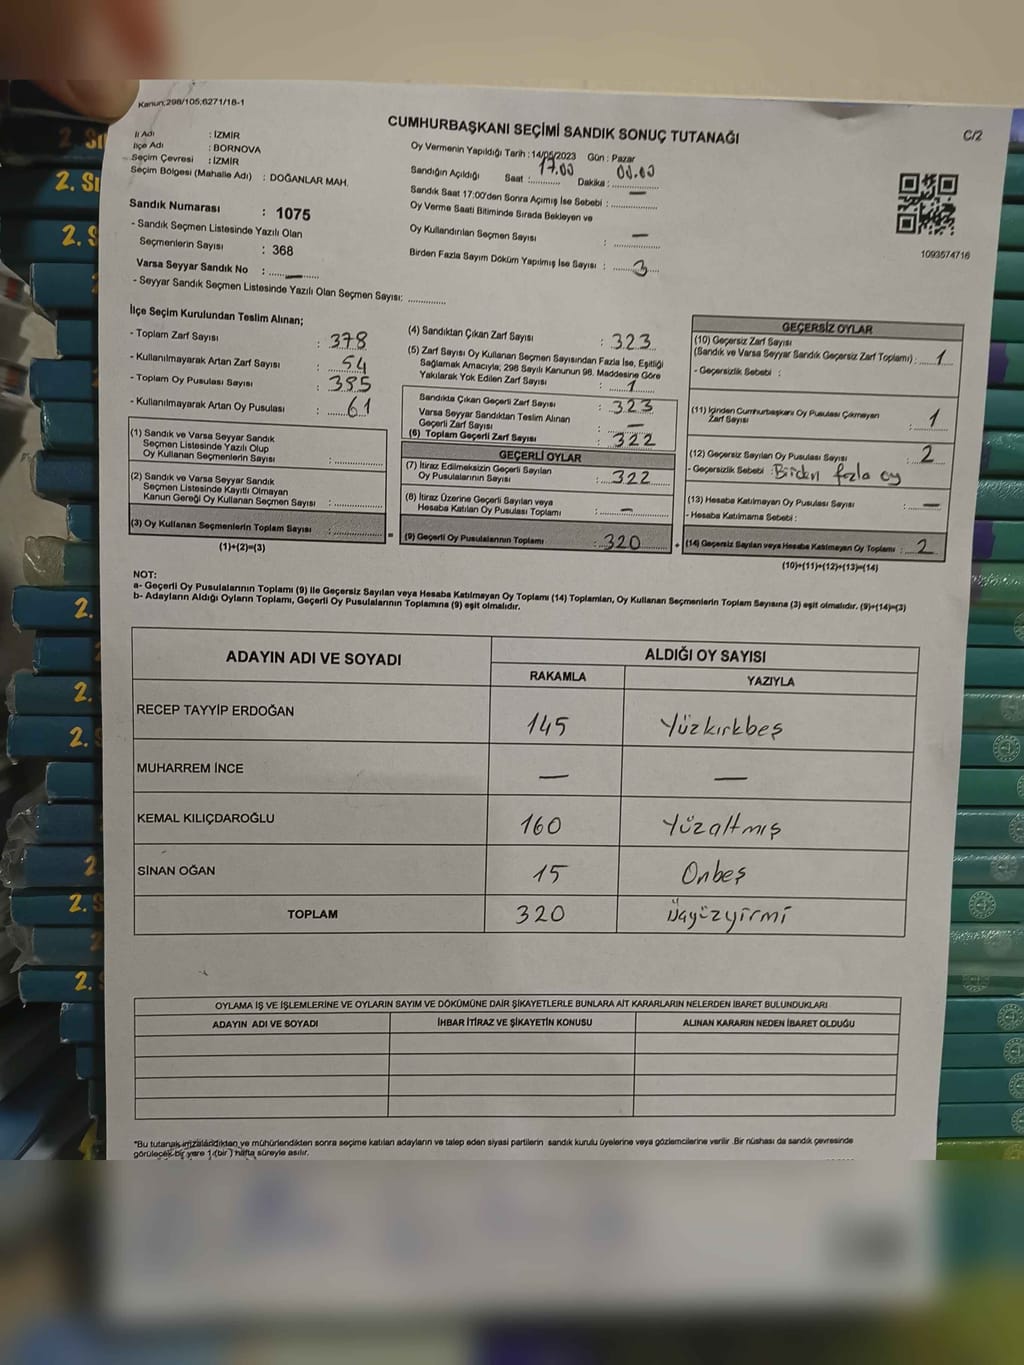 Kanun;298/105;6271/18-1
C/2
CUMHURBAŞKANI SEÇİMİ SANDIK SONUÇ TUTANAĞI
İl Adı : İZMİR
İlçe Adı : BORNOVA
Seçim Çevresi : İZMİR
Seçim Bölgesi (Mahalle Adı) : DOĞANLAR MAH.
Oy Vermenin Yapıldığı Tarih : 14/05/2023 Gün : Pazar
Sandığın Açıldığı Saat : 17.00 Dakika : 00.00
Sandık Saat 17:00'den Sonra Açılmış İse Sebebi : —
Oy Verme Saati Bitiminde Sırada Bekleyen ve
Oy Kullandırılan Seçmen Sayısı : —
Birden Fazla Sayım Döküm Yapılmış İse Sayısı : 3
1093574716
Sandık Numarası : 1075
- Sandık Seçmen Listesinde Yazılı Olan
Seçmenlerin Sayısı : 368
Varsa Seyyar Sandık No : —
- Seyyar Sandık Seçmen Listesinde Yazılı Olan Seçmen Sayısı:
İlçe Seçim Kurulundan Teslim Alınan;
- Toplam Zarf Sayısı : 378
- Kullanılmayarak Artan Zarf Sayısı : 54
- Toplam Oy Pusulası Sayısı : 385
- Kullanılmayarak Artan Oy Pusulası : 61
(1) Sandık ve Varsa Seyyar Sandık
Seçmen Listesinde Yazılı Olup
Oy Kullanan Seçmenlerin Sayısı :
(2) Sandık ve Varsa Seyyar Sandık
Seçmen Listesinde Kayıtlı Olmayan
Kanun Gereği Oy Kullanan Seçmen Sayısı :
(3) Oy Kullanan Seçmenlerin Toplam Sayısı :
(1)+(2)=(3)
(4) Sandıktan Çıkan Zarf Sayısı : 323
(5) Zarf Sayısı Oy Kullanan Seçmen Sayısından Fazla İse, Eşitliği
Sağlamak Amacıyla; 298 Sayılı Kanunun 98. Maddesine Göre
Yakılarak Yok Edilen Zarf Sayısı : 1
Sandıkta Çıkan Geçerli Zarf Sayısı : 323
Varsa Seyyar Sandıktan Teslim Alınan
Geçerli Zarf Sayısı : —
(6) Toplam Geçerli Zarf Sayısı : 322
GEÇERLİ OYLAR
(7) İtiraz Edilmeksizin Geçerli Sayılan
Oy Pusulalarının Sayısı : 322
(8) İtiraz Üzerine Geçerli Sayılan veya
Hesaba Katılan Oy Pusulası Toplamı : —
= (9) Geçerli Oy Pusulalarının Toplamı : 320
GEÇERSİZ OYLAR
(10) Geçersiz Zarf Sayısı
(Sandık ve Varsa Seyyar Sandık Geçersiz Zarf Toplamı) : 1
- Geçersizlik Sebebi :
(11) İçinden Cumhurbaşkanı Oy Pusulası Çıkmayan
Zarf Sayısı : 1
(12) Geçersiz Sayılan Oy Pusulası Sayısı : 2
- Geçersizlik Sebebi : Birden fazla oy
(13) Hesaba Katılmayan Oy Pusulası Sayısı : —
- Hesaba Katılmama Sebebi :
+ (14) Geçersiz Sayılan veya Hesaba Katılmayan Oy Toplamı : 2
(10)+(11)+(12)+(13)=(14)
NOT:
a- Geçerli Oy Pusulalarının Toplamı (9) ile Geçersiz Sayılan veya Hesaba Katılmayan Oy Toplamı (14) Toplamları, Oy Kullanan Seçmenlerin Toplam Sayısına (3) eşit olmalıdır. (9)+(14)=(3)
b- Adayların Aldığı Oyların Toplamı, Geçerli Oy Pusulalarının Toplamına (9) eşit olmalıdır.
ADAYIN ADI VE SOYADI ALDIĞI OY SAYISI
RAKAMLA YAZIYLA
RECEP TAYYİP ERDOĞAN 145 Yüzkırkbeş
MUHARREM İNCE — —
KEMAL KILIÇDAROĞLU 160 Yüzaltmış
SİNAN OĞAN 15 Onbeş
TOPLAM 320 Üçyüzyirmi
OYLAMA İŞ VE İŞLEMLERİNE VE OYLARIN SAYIM VE DÖKÜMÜNE DAİR ŞİKAYETLERLE BUNLARA AİT KARARLARIN NELERDEN İBARET BULUNDUKLARI
ADAYIN ADI VE SOYADI İHBAR İTİRAZ VE ŞİKAYETİN KONUSU ALINAN KARARIN NEDEN İBARET OLDUĞU
*Bu tutanak imzalandıktan ve mühürlendikten sonra seçime katılan adayların ve talep eden siyasi partilerin sandık kurulu üyelerine veya gözlemcilerine verilir .Bir nüshası da sandık çevresinde
görülecek bir yere 1 (bir ) hafta süreyle asılır.
2. Sı
2. Sı
2. S
2.
2.
2.
2
2. S
2.